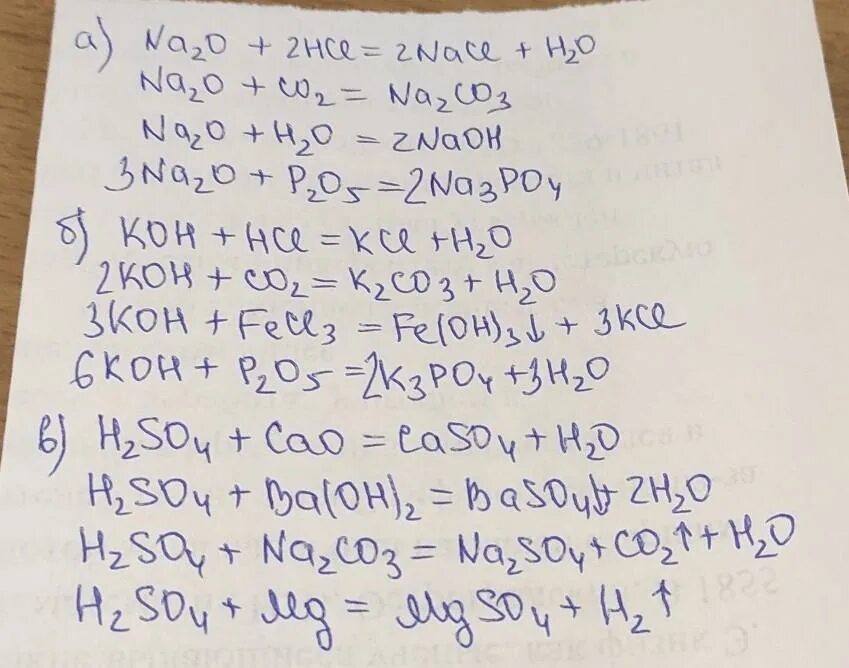 а) Na₂O + 2HCl = 2NaCl + H₂O
Na₂O + CO₂ = Na₂CO₃
Na₂O + H₂O = 2NaOH
3Na₂O + P₂O₅ = 2Na₃PO₄
б) KOH + HCl = KCl + H₂O
2KOH + CO₂ = K₂CO₃ + H₂O
3KOH + FeCl₃ = Fe(OH)₃↓ + 3KCl
6KOH + P₂O₅ = 2K₃PO₄ + 3H₂O
в) H₂SO₄ + CaO = CaSO₄ + H₂O
H₂SO₄ + Ba(OH)₂ = BaSO₄↓ + 2H₂O
H₂SO₄ + Na₂CO₃ = Na₂SO₄ + CO₂↑ + H₂O
H₂SO₄ + Mg = MgSO₄ + H₂↑